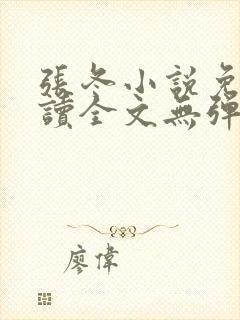 張冬小說免
讀全文無彈
廖偉